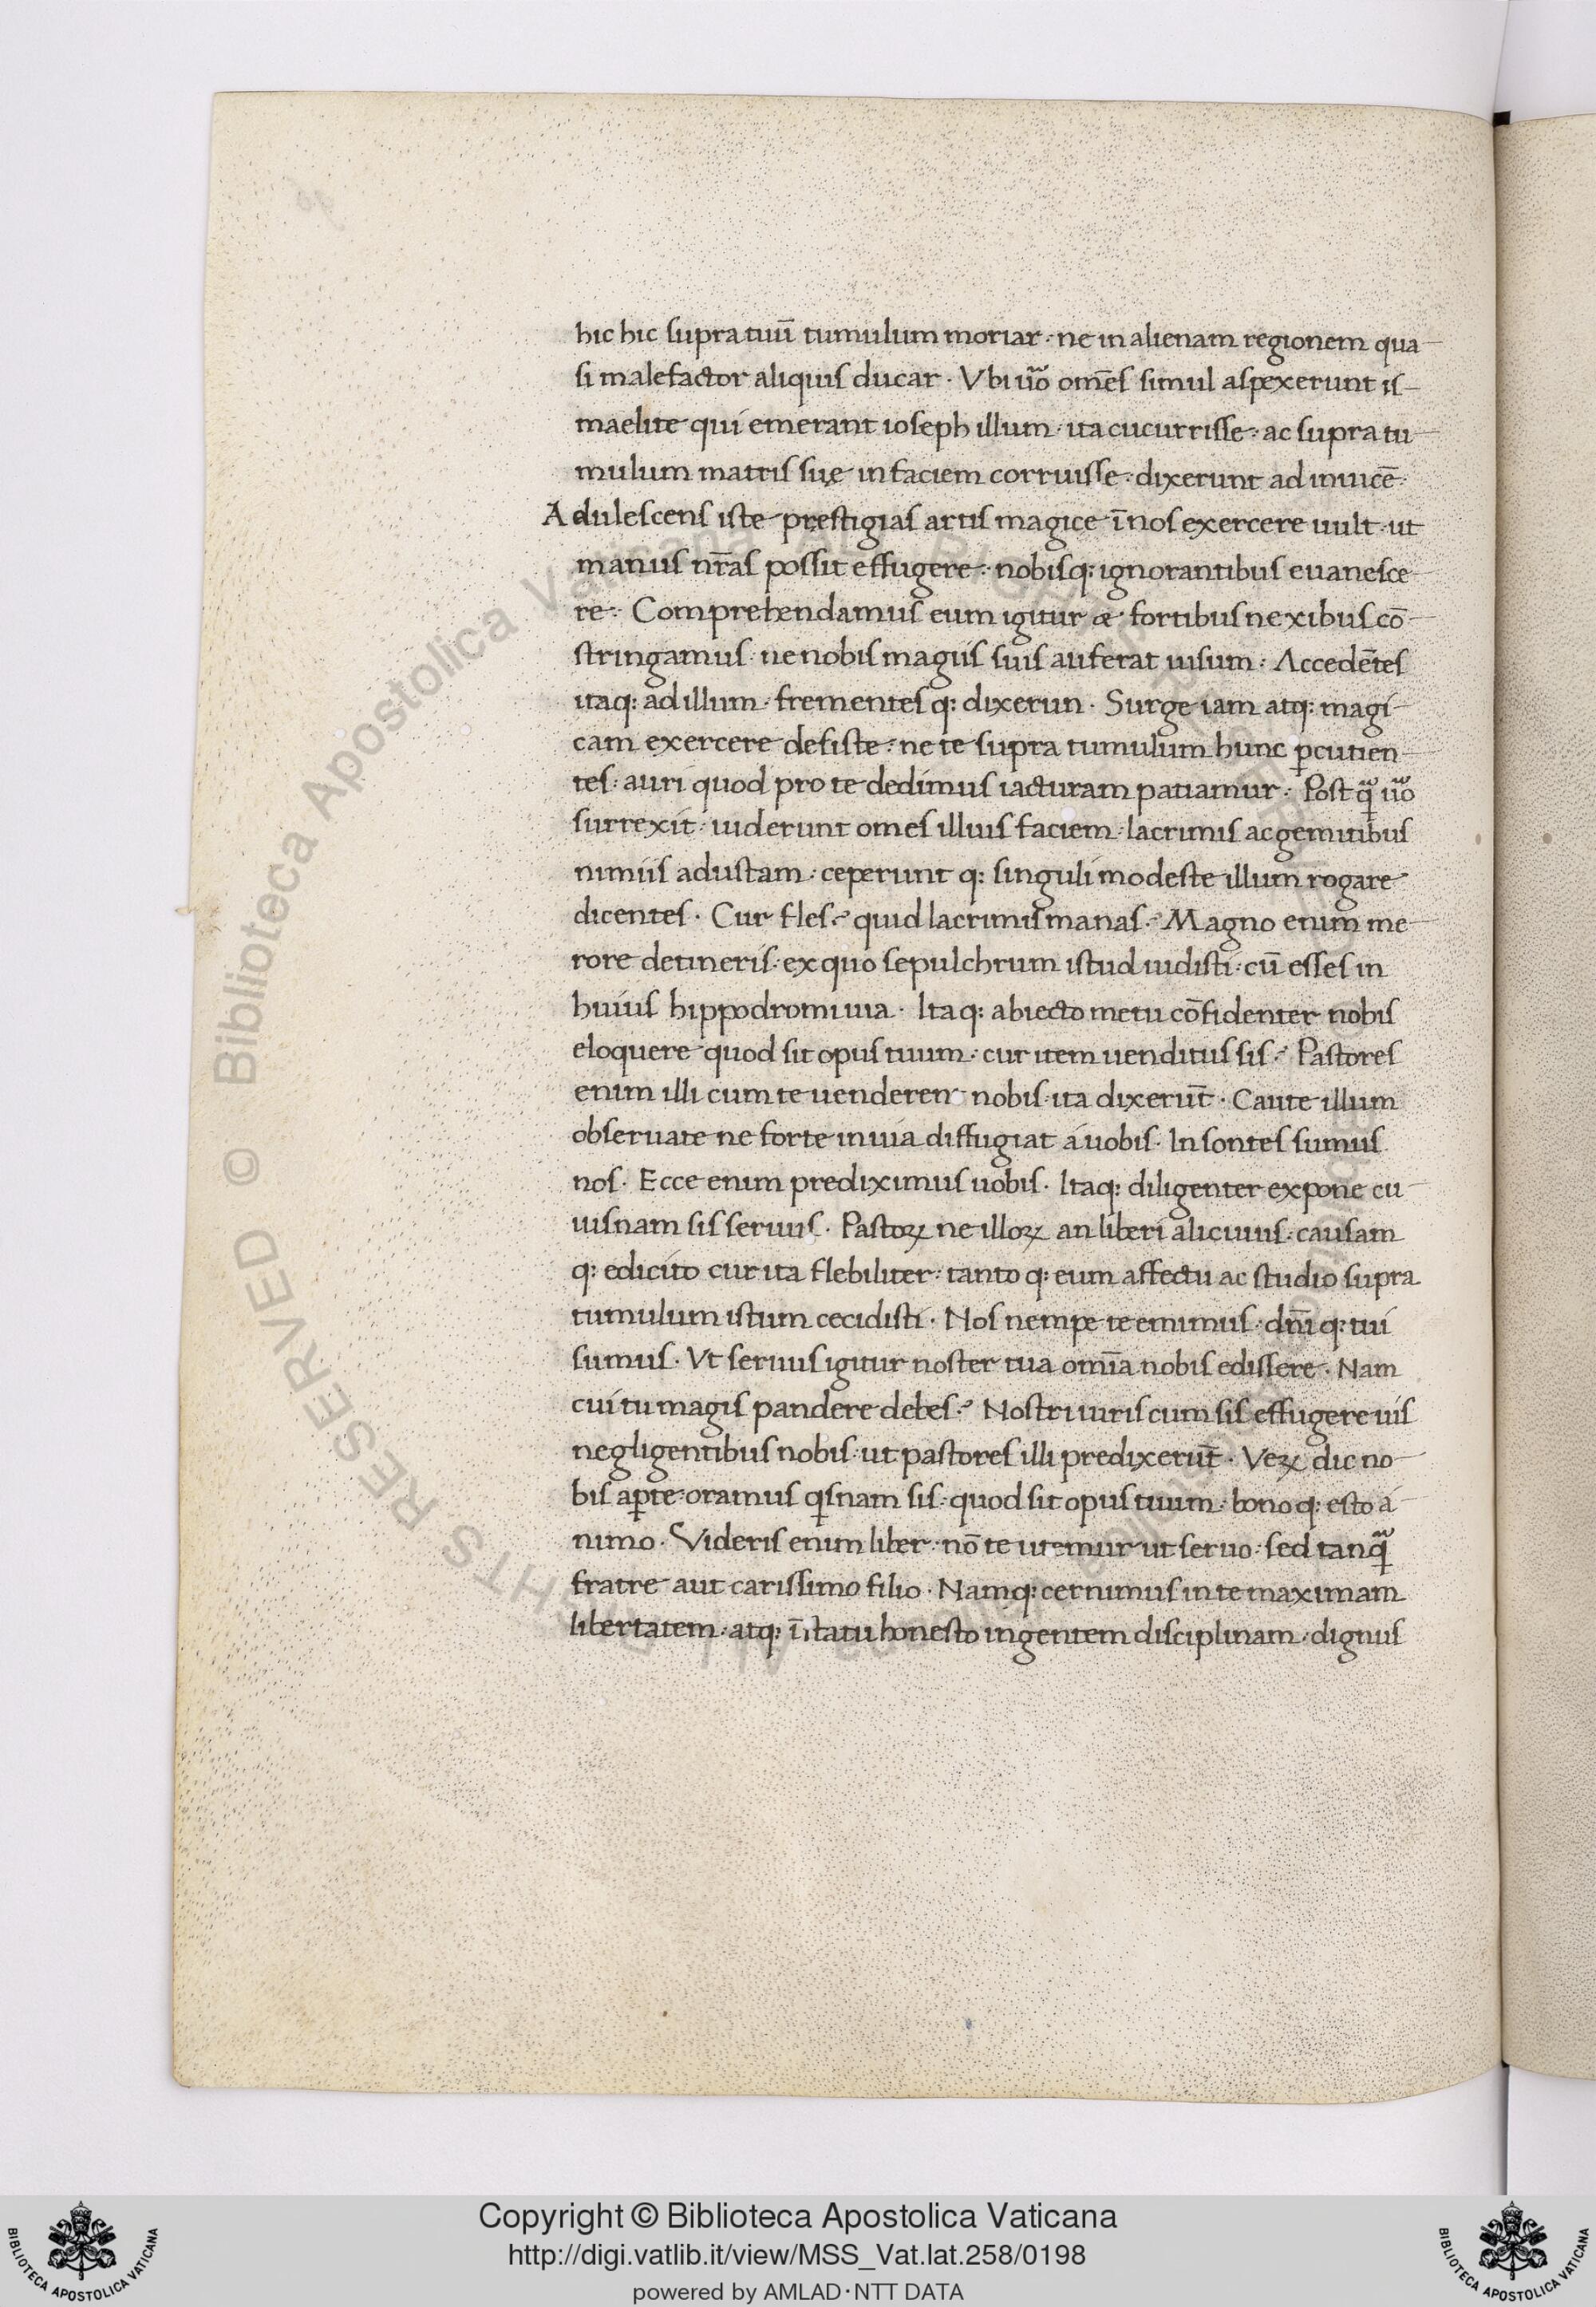 hic hic supra tuū tumulum moriar · ne in alienam regionem qua
si malefactor aliquis ducar · Vbi uoᷓ omēs simul aspexerunt is
maelite qui emerant ioseph illum · ita cucurrisse · ac supra tu
mulum matris suę in faciem corruisse · dixerunt ad inuicē ·
Adulescens iste prestigias artis magice ī nos exercere uult · ut
manus nr̄as possit effugere · nobisq: ignorantibus euanesce
re · Comprehendamus eum igitur & fortibus nexibus cō
stringamus · ne nobis magiis suis auferat uisum · Accedētes
itaq: ad illum · frementes q: dixerun · Surge iam atq: magi
cam exercere desiste · ne te supra tumulum hunc ꝑcutien
tes · auri quod pro te dedimus iacturam patiamur · Post qᷓ uoᷓ
surrexit · uiderunt omes illius faciem · lacrimis ac gemitibus
nimiis adustam · ceperunt q: singuli modeste illum rogare
dicentes · Cur fles? quid lacrimis manas? Magno enim me
rore detineris · ex quo sepulchrum istud uidisti · cū esses in
huius hippodromi uia · Itaq: abiecto metu cōfidenter nobis
eloquere quod sit opus tuum · cur item uenditus sis? Pastores
enim illi cum te uenderen nobis · ita dixerūt · Caute illum
obseruate ne forte in uia diffugiat á uobis · In sontes sumus
nos · Ecce enim prediximus uobis · Itaq: diligenter expone cu
uisnam sis seruus · Pastoꝝ ne illoꝝ an liberi alicuius · causam
q: edicito cur ita flebiliter · tanto q: eum affectu ac studio supra
tumulum istum cecidisti · Nos nempe te emimus · dn̄i q: tui
sumus · Vt seruus igitur noster tua omīa nobis edissere · Nam
cui tu magis pandere debes? Nostri iuris cum sis effugere uis
negligentibus nobis · ut pastores illi predixerūt · Veꝝ dic no
bis aꝑte oramus qisnam sis · quod sit opus tuum · bono q: esto á
nimo · Videris enim liber · nō te utemur ut seruo · sed tanqᷓ
fratre aut carissimo filio · Namq: cernimus in te maximam
libertatem · atq: ī statu honesto ingentem disciplinam · dignus
Copyright © Biblioteca Apostolica Vaticana
http://digi.vatlib.it/view/MSS_Vat.lat.258/0198
powered by AMLAD·NTT DATA
BIBLIOTECA APOSTOLICA VATICANA
BIBLIOTECA APOSTOLICA VATICANA